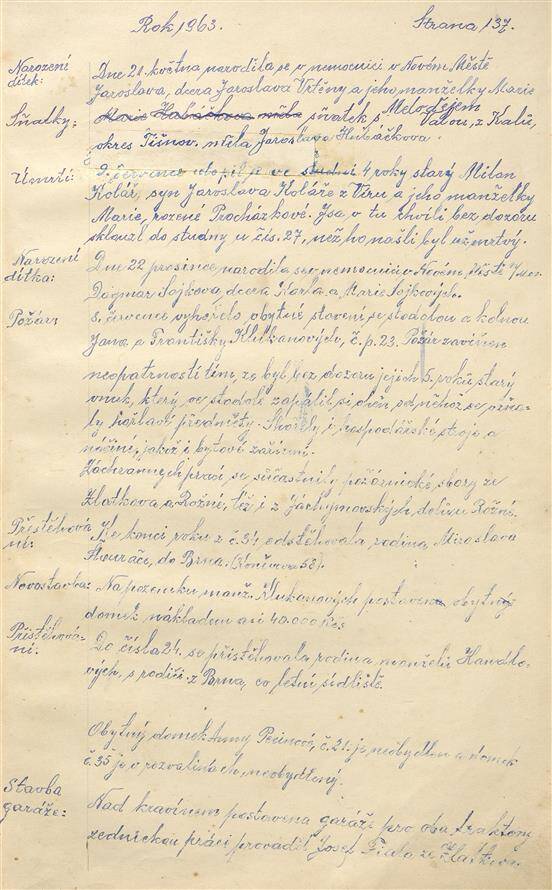 Rok 1963. Strana 137.
Narození dítek: Dne 21. května narodila se v nemocnici v Novém Městě
Jaroslava, dcera Jaroslava Vrtěny a jeho manželky Marie
Sňatky: Marie Hubáčkova měla sňatek s Metodějem
Valou, z Kalů,
okres Tišnov, měla Jaroslava Hubáčkova.
Úmrtí: 9. července utopil se ve studni 4 roky starý Milan
Kolář, syn Jaroslava Koláře z Víru a jeho manželky
Marie, rozené Procházkové. Jsa v tu chvíli bez dozoru
sklouzl do studny u čís. 27, než ho našli byl už mrtvý.
Narození dítka: Dne 22 prosince narodila se v nemocnici v Novém Městě n/Mor.
Dagmar Sojkova, dcera Karla a Marie Sojkových.
Požár: 8. července vyhořelo obytné stavení se stodolou a kolnou
Jana a Františky Klukanových, č. p. 23. Požár zaviněn
neopatrností tím, že byl bez dozoru jejich 5. roků starý
vnuk, který ve stodole zapálil si oheň od něhož se vzňa-
ly hořlavé předměty. Shořely i hospodářské stroje a
náčiní, jakož i bytové zařízení.
Záchranných prací se súčastnily požárnické sbory ze
Zlatkova a Rožné, též i z Jáchymovských dolů v Rožné.
Přestěhová ní: Ke konci roku z č. 34 odstěhovala rodina Miroslava
do Brna. 58).
Novostavba: Na pozemku manž. Klukanových postaven obytný
domek nákladem asi 40.000 Kčs
Přistěhová- ní: Do čísla 24. se přistěhovala rodina manželů Handlo-
vých, s rodiči z Brna, co letní sídliště.
Obytný domek Anny č. 21. je neobydlen a domek
č. 35 je v rozvalinách, neobydlený.
Stavba garáže: Nad kravínem postavena garáž pro oba traktory
zednickou práci prováděl Josef Fiala ze Zlatkova.